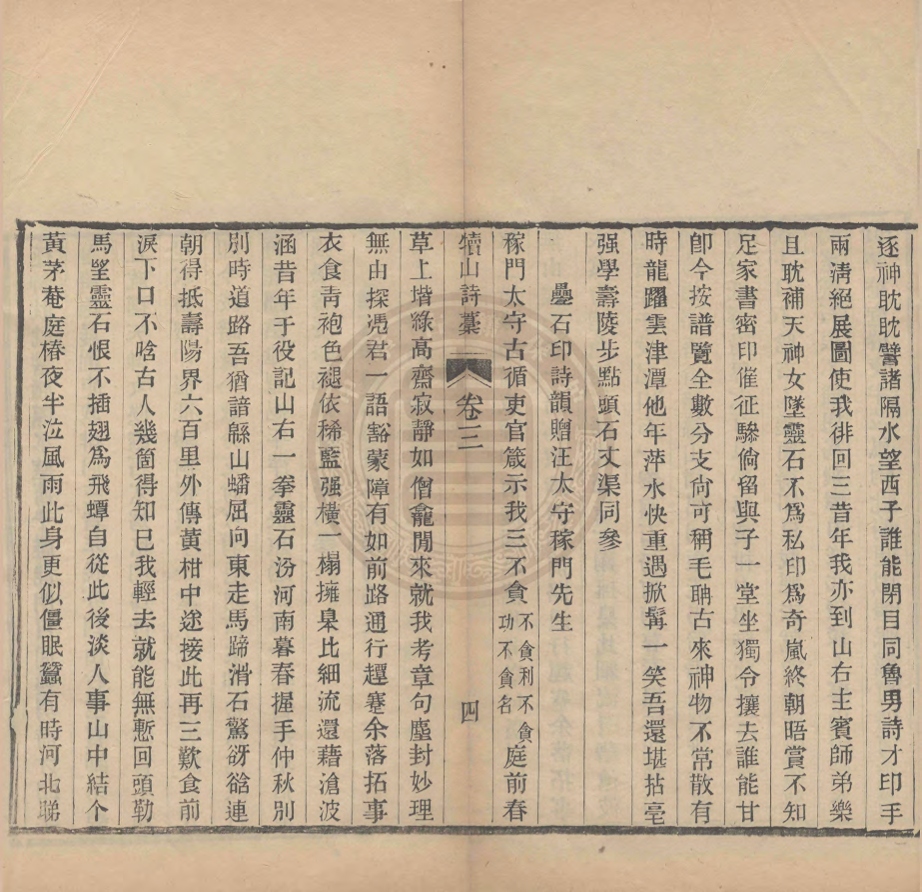 逐神眈眈譬諸隔水望西子誰能閉目同魯男詩才印手
兩淸絕展圖使我徘回三昔年我亦到山右主賓師弟樂
且耽補天神女墜靈石不爲私印爲奇嵐終朝晤賞不知
足家書密印催征驂倘留與子一堂坐獨令攘去誰能甘
卽今按譜覽全數分支尙可稱毛聃古來神物不常散有
時龍躍雲津潭他年萍水快重遇掀髯一笑吾還堪拈毫
强學壽陵步點頭石丈渠同參
疊石印詩韻贈汪太守稼門先生
稼門太守古循吏官箴示我三不貪不貪利不貪功不貪名庭前春
犢山詩藁 卷三 四
草上堦綠高齋寂靜如僧龕閒來就我考章句塵封妙理
無由探凴君一語豁蒙障有如前路通行趯蹇余落拓事
衣食靑袍色褪依稀藍强橫一榻擁臯比細流還藉滄波
涵昔年于役記山右一拳靈石汾河南暮春握手仲秋別
別時道路吾猶諳緜山蟠屈向東走馬蹄滑石驚谺谽連
朝得抵壽陽界六百里外傳黃柑中途接此再三歎食前
淚下口不唅古人幾箇得知已我輕去就能無慙回頭勒
馬望靈石恨不插翅爲飛蟫自從此後淡人事山中結个
黃茅菴庭椿夜半泣風雨此身更似僵眠蠶有時河北睇